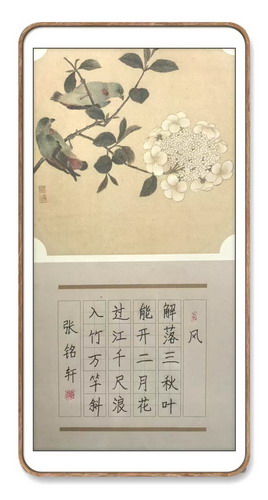 风
解落三秋叶
能开二月花
过江千尺浪
入竹万竿斜
张铭轩